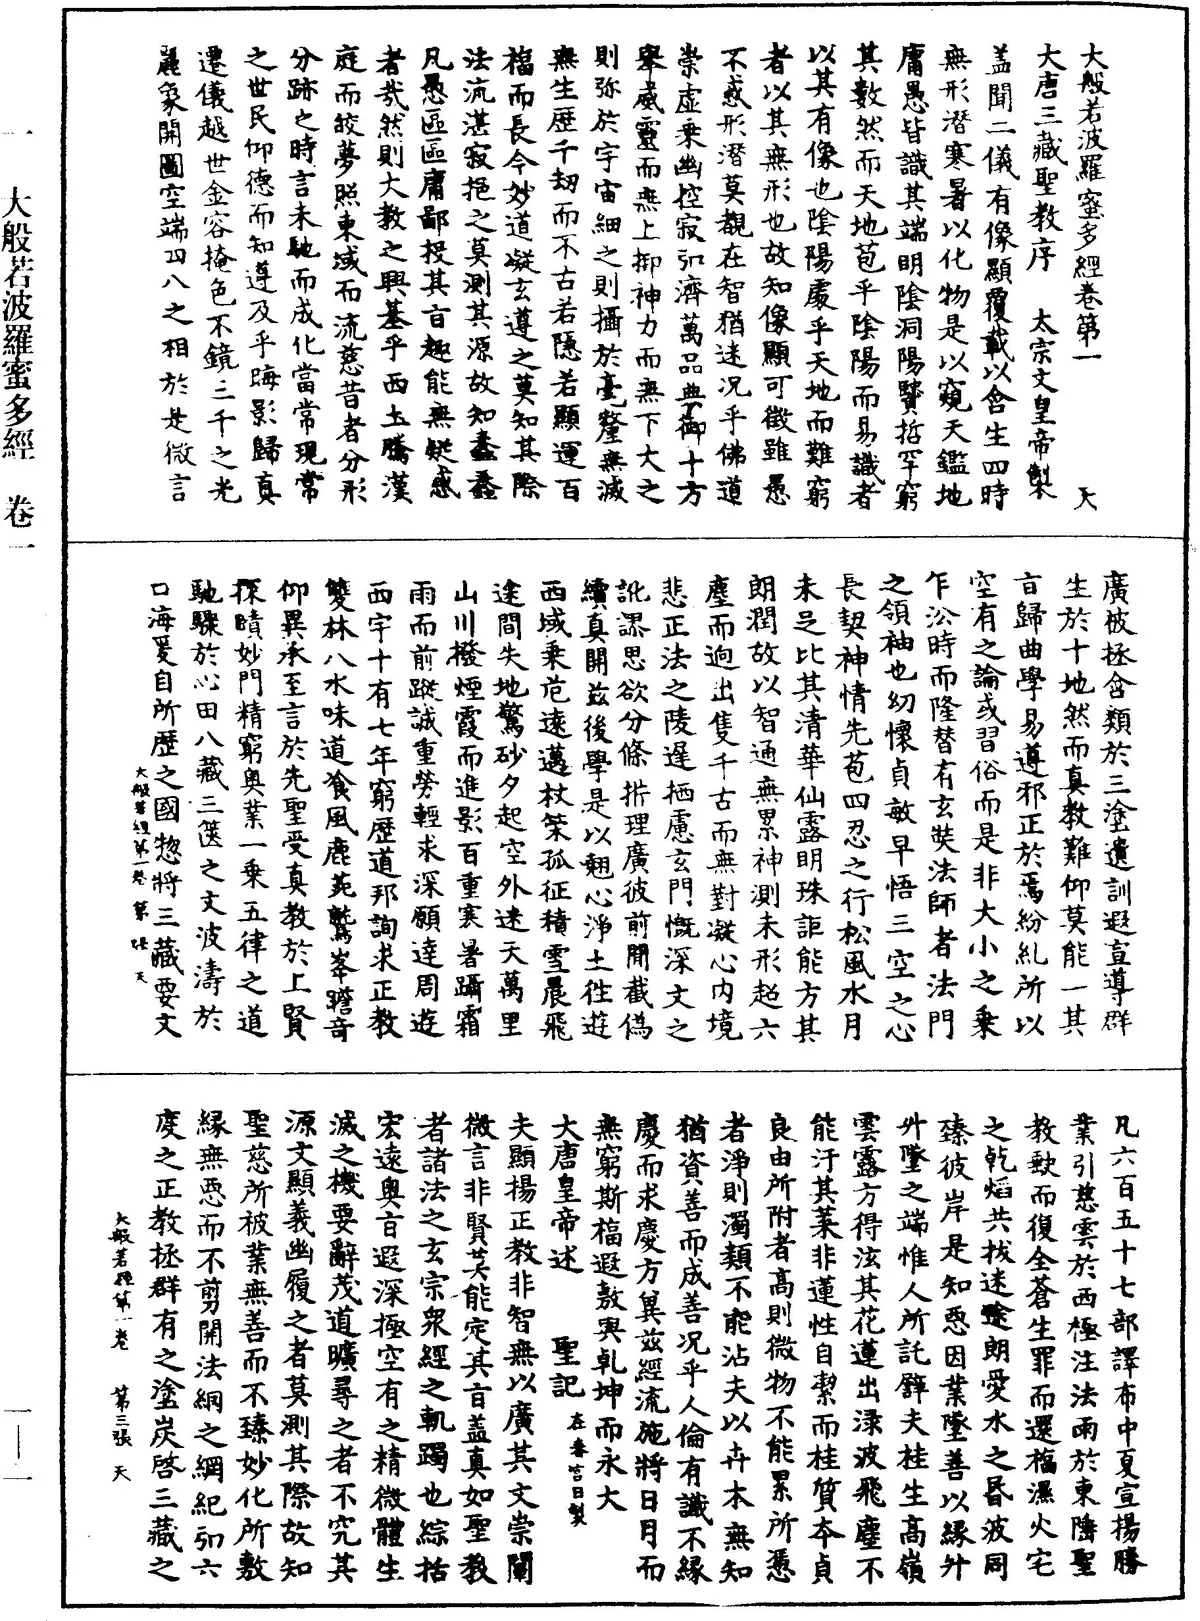 大般若波羅蜜多經卷第一　天
大唐三藏聖教序　太宗文皇帝製
蓋聞二儀有像顯覆載以含生四時
無形潛寒暑以化物是以窺天鑑地
庸愚皆識其端明陰洞陽賢哲罕窮
其數然而天地苞乎陰陽而易識者
以其有像也陰陽處乎天地而難窮
者以其無形也故知像顯可徵雖愚
不惑形潛莫覩在智猶迷況乎佛道
崇虛乘幽控寂弘濟萬品典御十方
舉威靈而無上抑神力而無下大之
則弥於宇宙細之則攝於毫釐無滅
無生歷千劫而不古若隱若顯運百
福而長今妙道凝玄遵之莫知其際
法流湛寂挹之莫測其源故知蠢蠢
凡愚區區庸鄙投其旨趣能無疑惑
者哉然則大教之興基乎西土騰漢
庭而皎夢照東域而流慈昔者分形
分跡之時言未馳而成化當常現常
之世民仰德而知遵及乎晦影歸真
遷儀越世金容掩色不鏡三千之光
麗象開圖空端四八之相於是微言
廣被拯含類於三塗遺訓遐宣導群
生於十地然而真教難仰莫能一其
旨歸曲學易遵邪正於焉紛糺所以
空有之論或習俗而是非大小之乘
乍沿時而隆替有玄奘法師者法門
之領袖也幼懷貞敏早悟三空之心
長契神情先苞四忍之行松風水月
未足比其清華仙露明珠詎能方其
朗潤故以智通無累神測未形超六
塵而逈出隻千古而無對凝心內境
悲正法之陵遲栖慮玄門慨深文之
訛謬思欲分條析理廣彼前聞截偽
續真開茲後學是以翹心淨土往遊
西域乘危遠邁杖策孤征積雪晨飛
途間失地驚砂夕起空外迷天萬里
山川撥煙霞而進影百重寒暑躡霜
雨而前蹤誠重勞輕求深願達周遊
西宇十有七年窮歷道邦詢求正教
雙林八水味道飡風鹿苑鷲峯瞻奇
仰異承至言於先聖受真教於上賢
探賾妙門精窮奧業一乘五律之道
馳驟於心田八藏三篋之文波濤於
口海爰自所歷之國惣將三藏要文
大般若經第一卷　第　張　天
凡六百五十七部譯布中夏宣揚勝
業引慈雲於西極注法雨於東陲聖
教缺而復全蒼生罪而還福濕火宅
之乾焰共拔迷途朗愛水之昏波同
臻彼岸是知惡因業墜善以緣升
外墜之端惟人所託譬夫桂生高嶺
雲露方得泫其花蓮出淥波飛塵不
能汙其葉非蓮性自潔而桂質本貞
良由所附者高則微物不能累所憑
者淨則濁類不能沾夫以卉木無知
猶資善而成善況乎人倫有識不緣
慶而求慶方冀茲經流施將日月而
無窮斯福遐敷與乾坤而永大
大唐皇帝述　聖記　在春宮日製
夫顯揚正教非智無以廣其文崇闡
微言非賢莫能定其旨蓋真如聖教
者諸法之玄宗眾經之軌躅也綜括
宏遠奧旨遐深極空有之精微體生
滅之機要辭茂道曠尋之者不究其
源文顯義幽履之者莫測其際故知
聖慈所被業無善而不臻妙化所敷
緣無惡而不剪開法網之綱紀弘六
度之正教拯群有之塗炭啓三藏之
大般若經第一卷　第三張　天
一　大般若波羅蜜多經　卷一
一—一